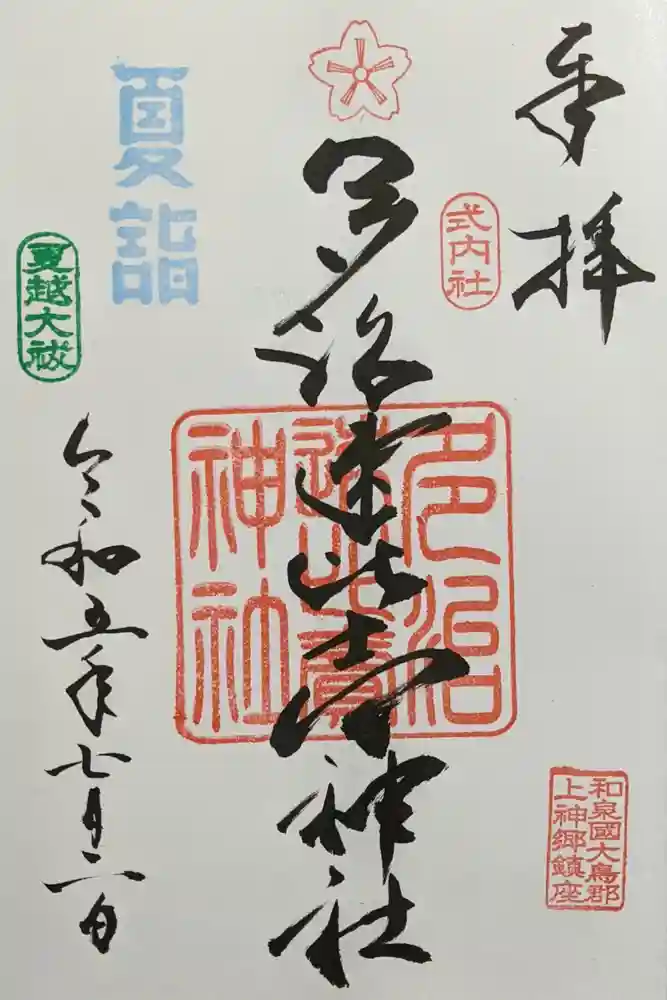 奉拝
式内社
多治速比売神社
多治
速比賣
神社
夏詣
夏越大祓
令和五年七月二日
和泉國大鳥郡
上神郷鎮座